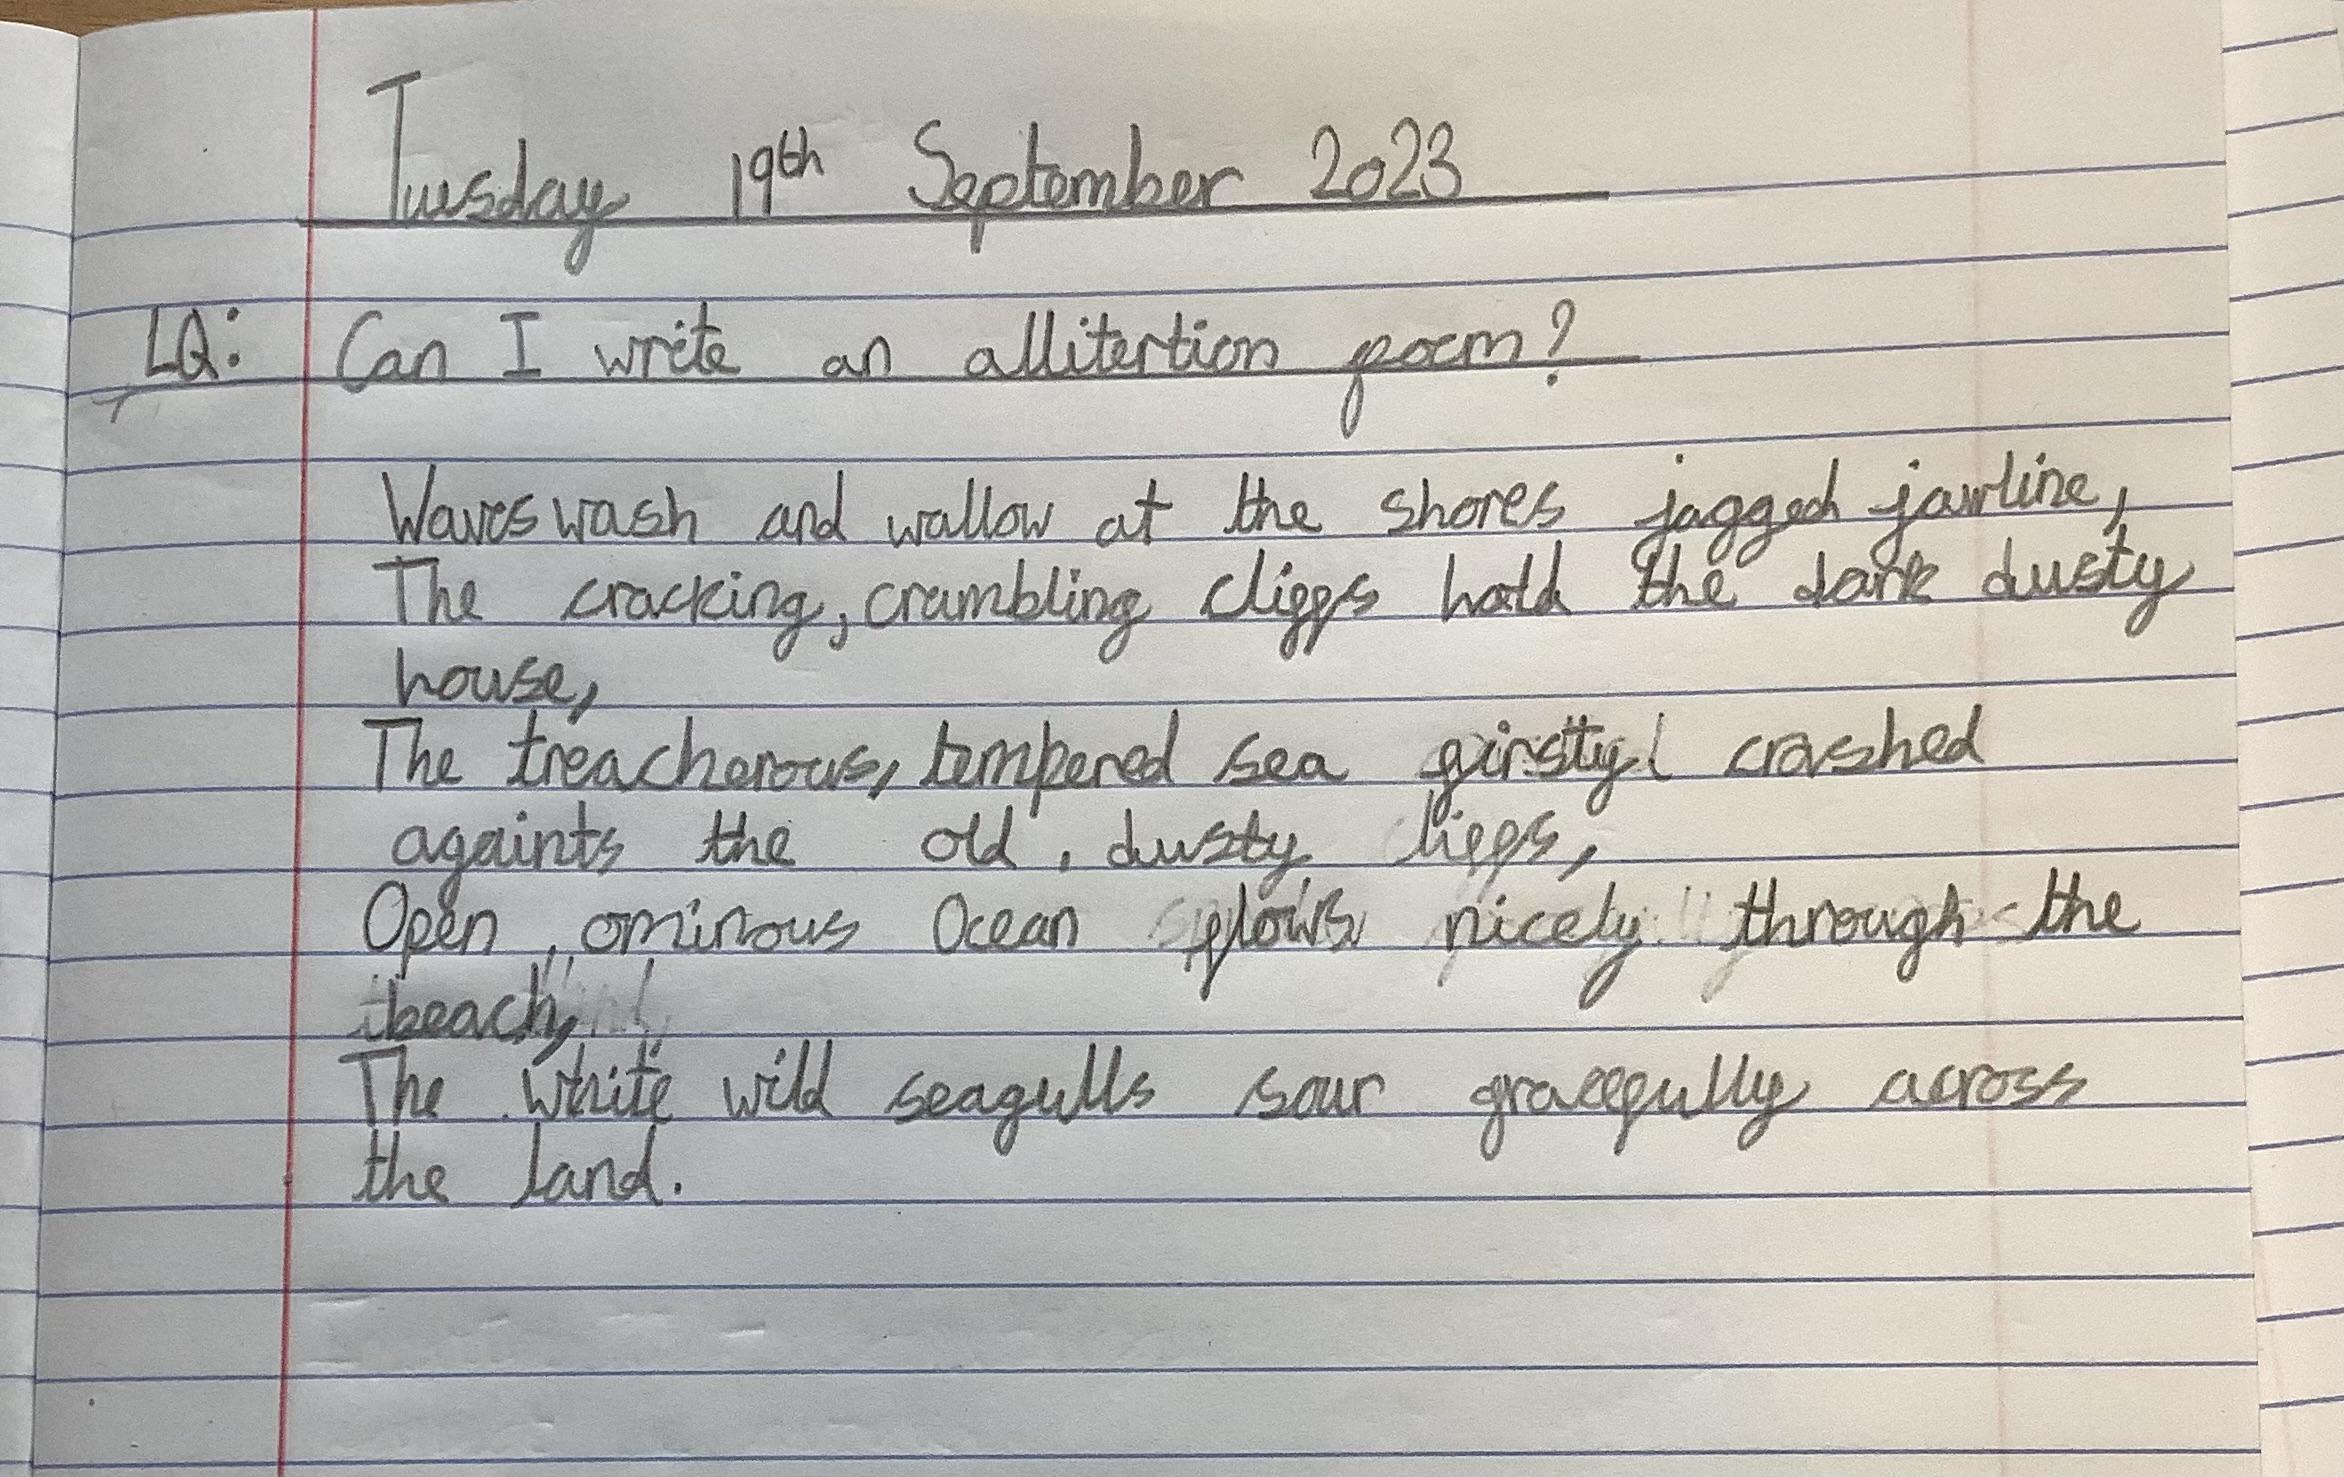 Tuesday 19th September 2023
LQ: Can I write an allitertion poem?
Waves wash and wallow at the shores jagged jawline,
The cracking, crambling cliffs hold the dark dusty
house,
The treacherous, tempered sea crashed
againts the old, dusty cliffs,
Open, ominous Ocean flows nicely through the
beach,
The white wild seagulls sour gracefully across
the land.